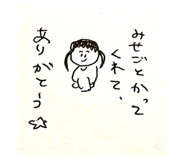 みせごとかって
くれて、
ありがとーう☆